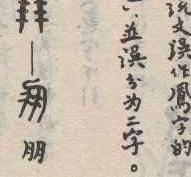 說文誤作鳳字的
，並誤分为二字。
朋